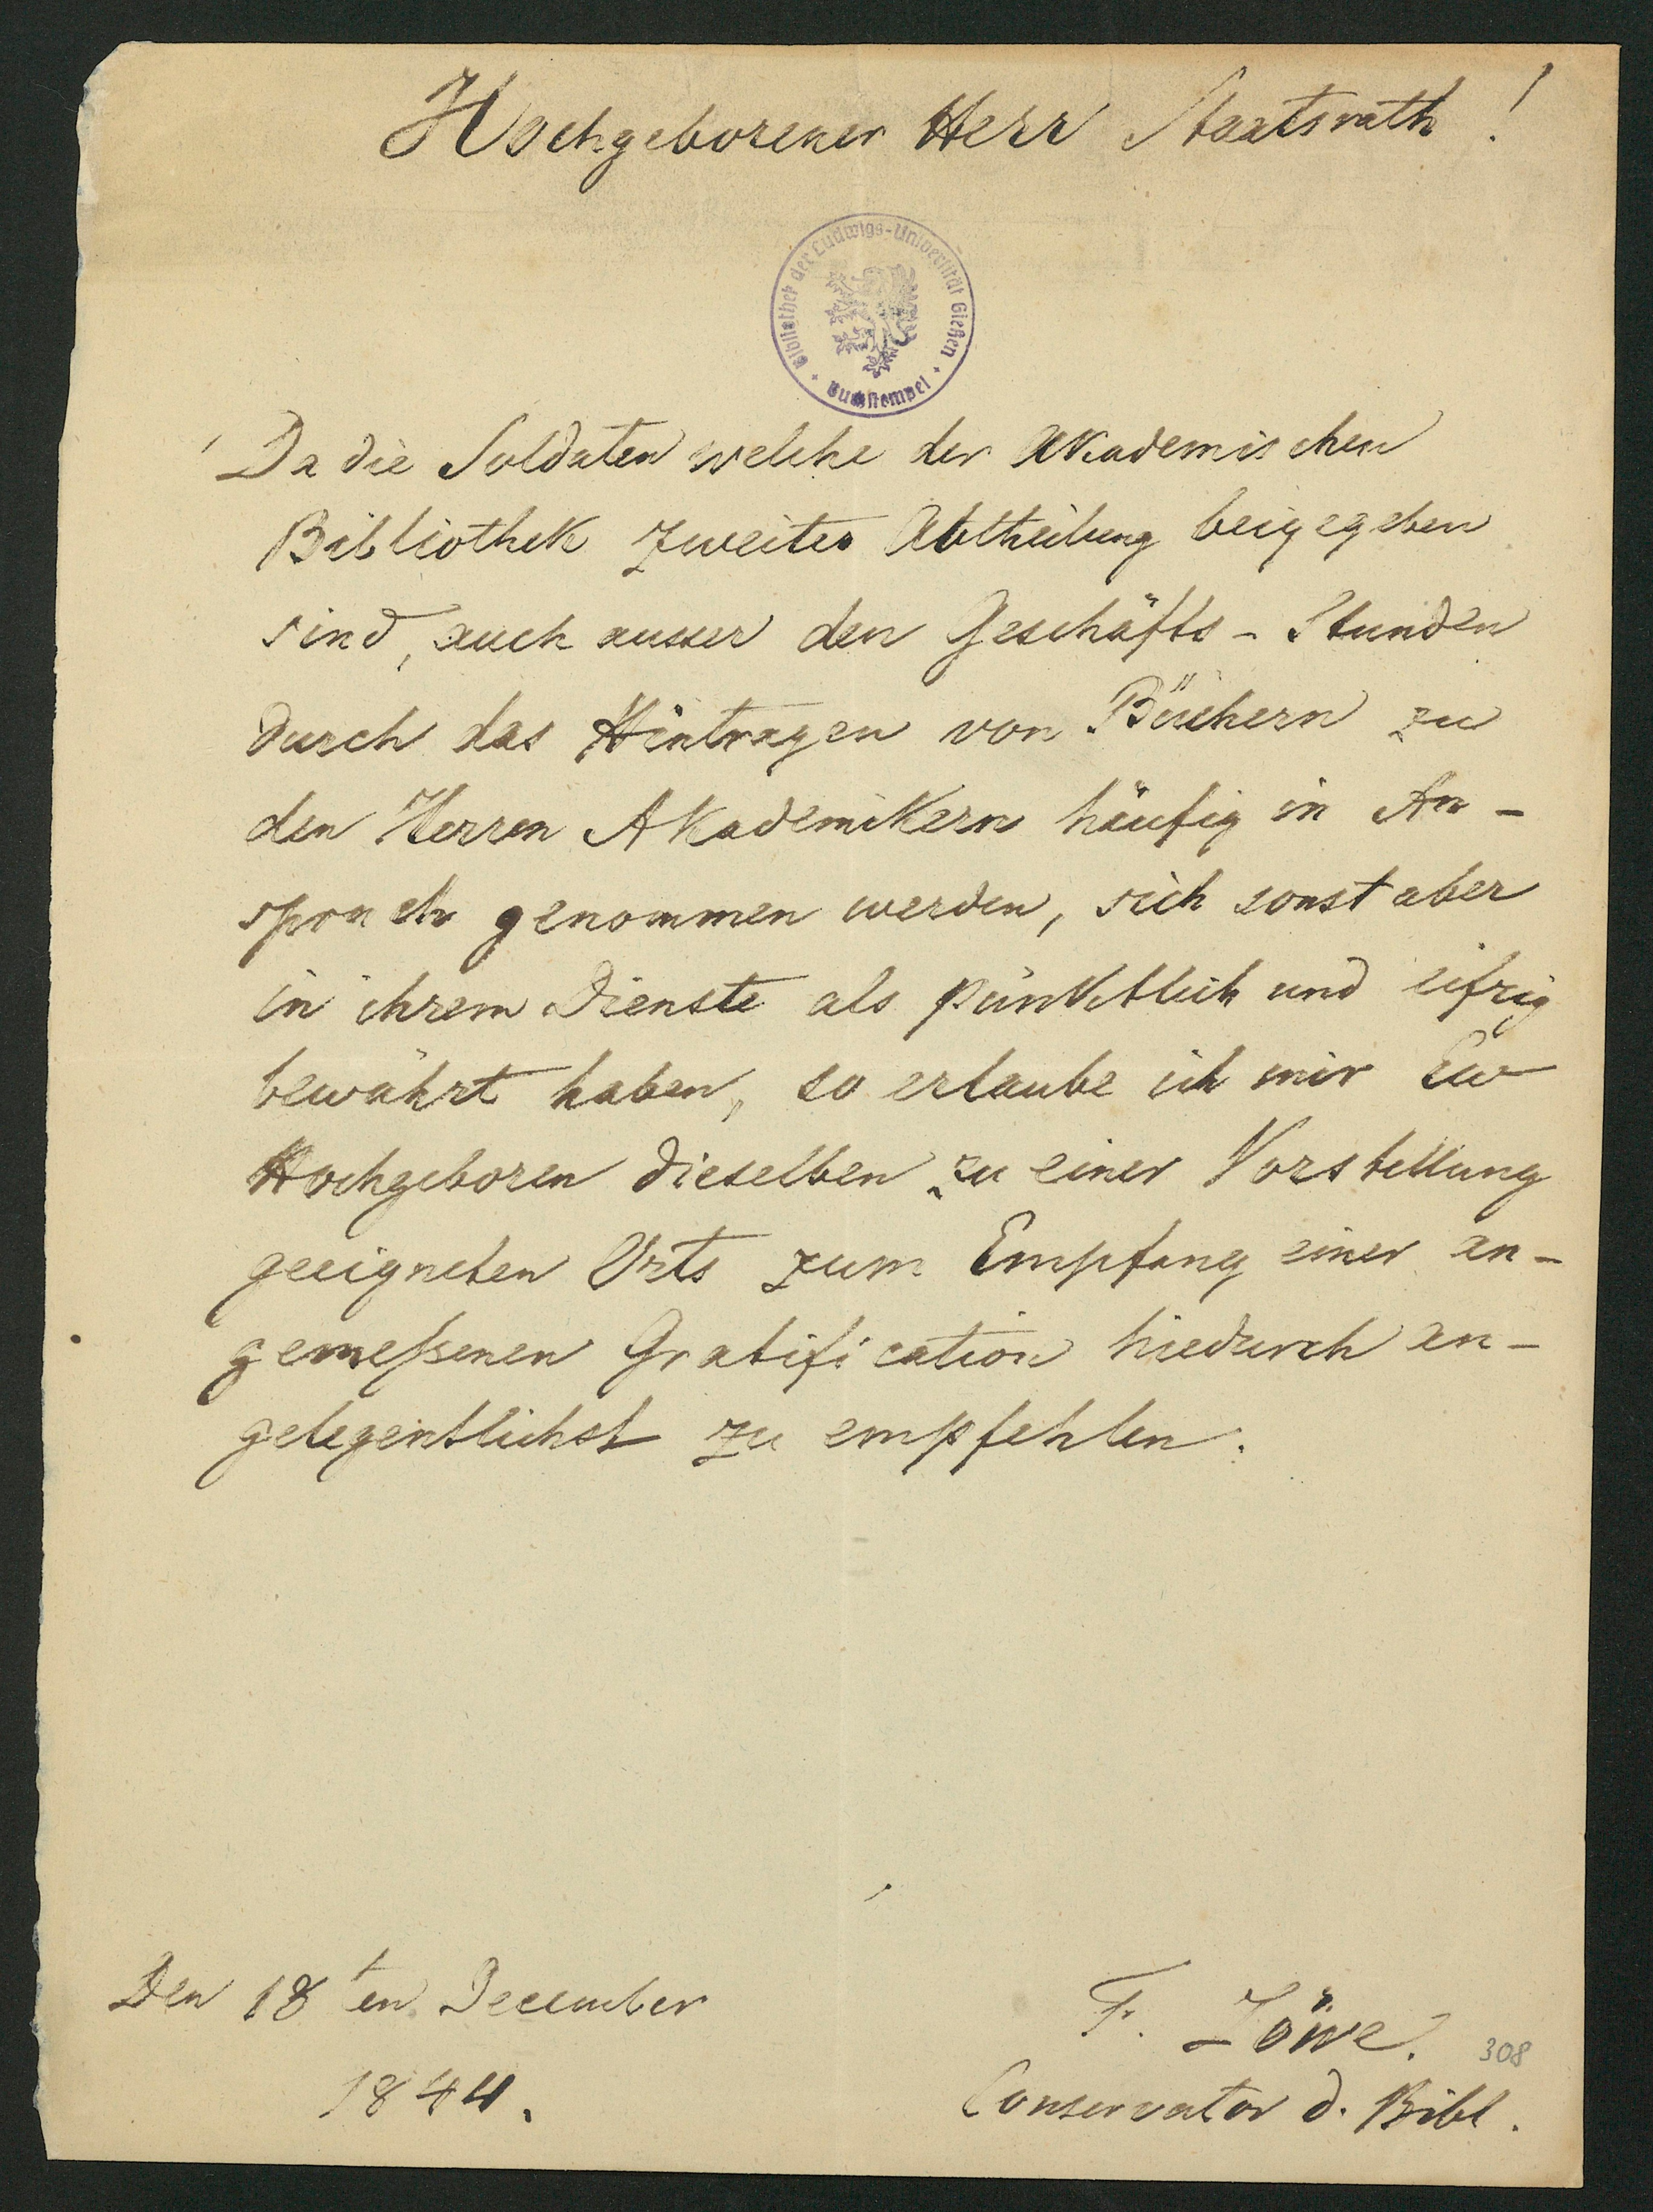 Hochgeborener Herr Staatsrath!
Bibliothek der Ludwigs-Universität Gießen
Buchstempel
Da die Soldaten welche der Akademischen
Bibliothek zweiter Abtheilung beigegeben
sind, auch ausser den Geschäfts-Stunden
durch das Hintragen von Büchern zu
den Herren Akademikern häufig in An-
spruch genommen werden, sich sonst aber
in ihrem Dienste als pünktlich und eifrig
bewährt haben, so erlaube ich mir Ew
Hochgeboren dieselben zu einer Vorstellung
geeigneten Orts zum Empfang einer an-
gemeßenen Gratification hiedurch an-
gelegentlichst zu empfehlen.
Den 18ten December
1844.
F. Löwe.
308
Conservator d. Bibl.